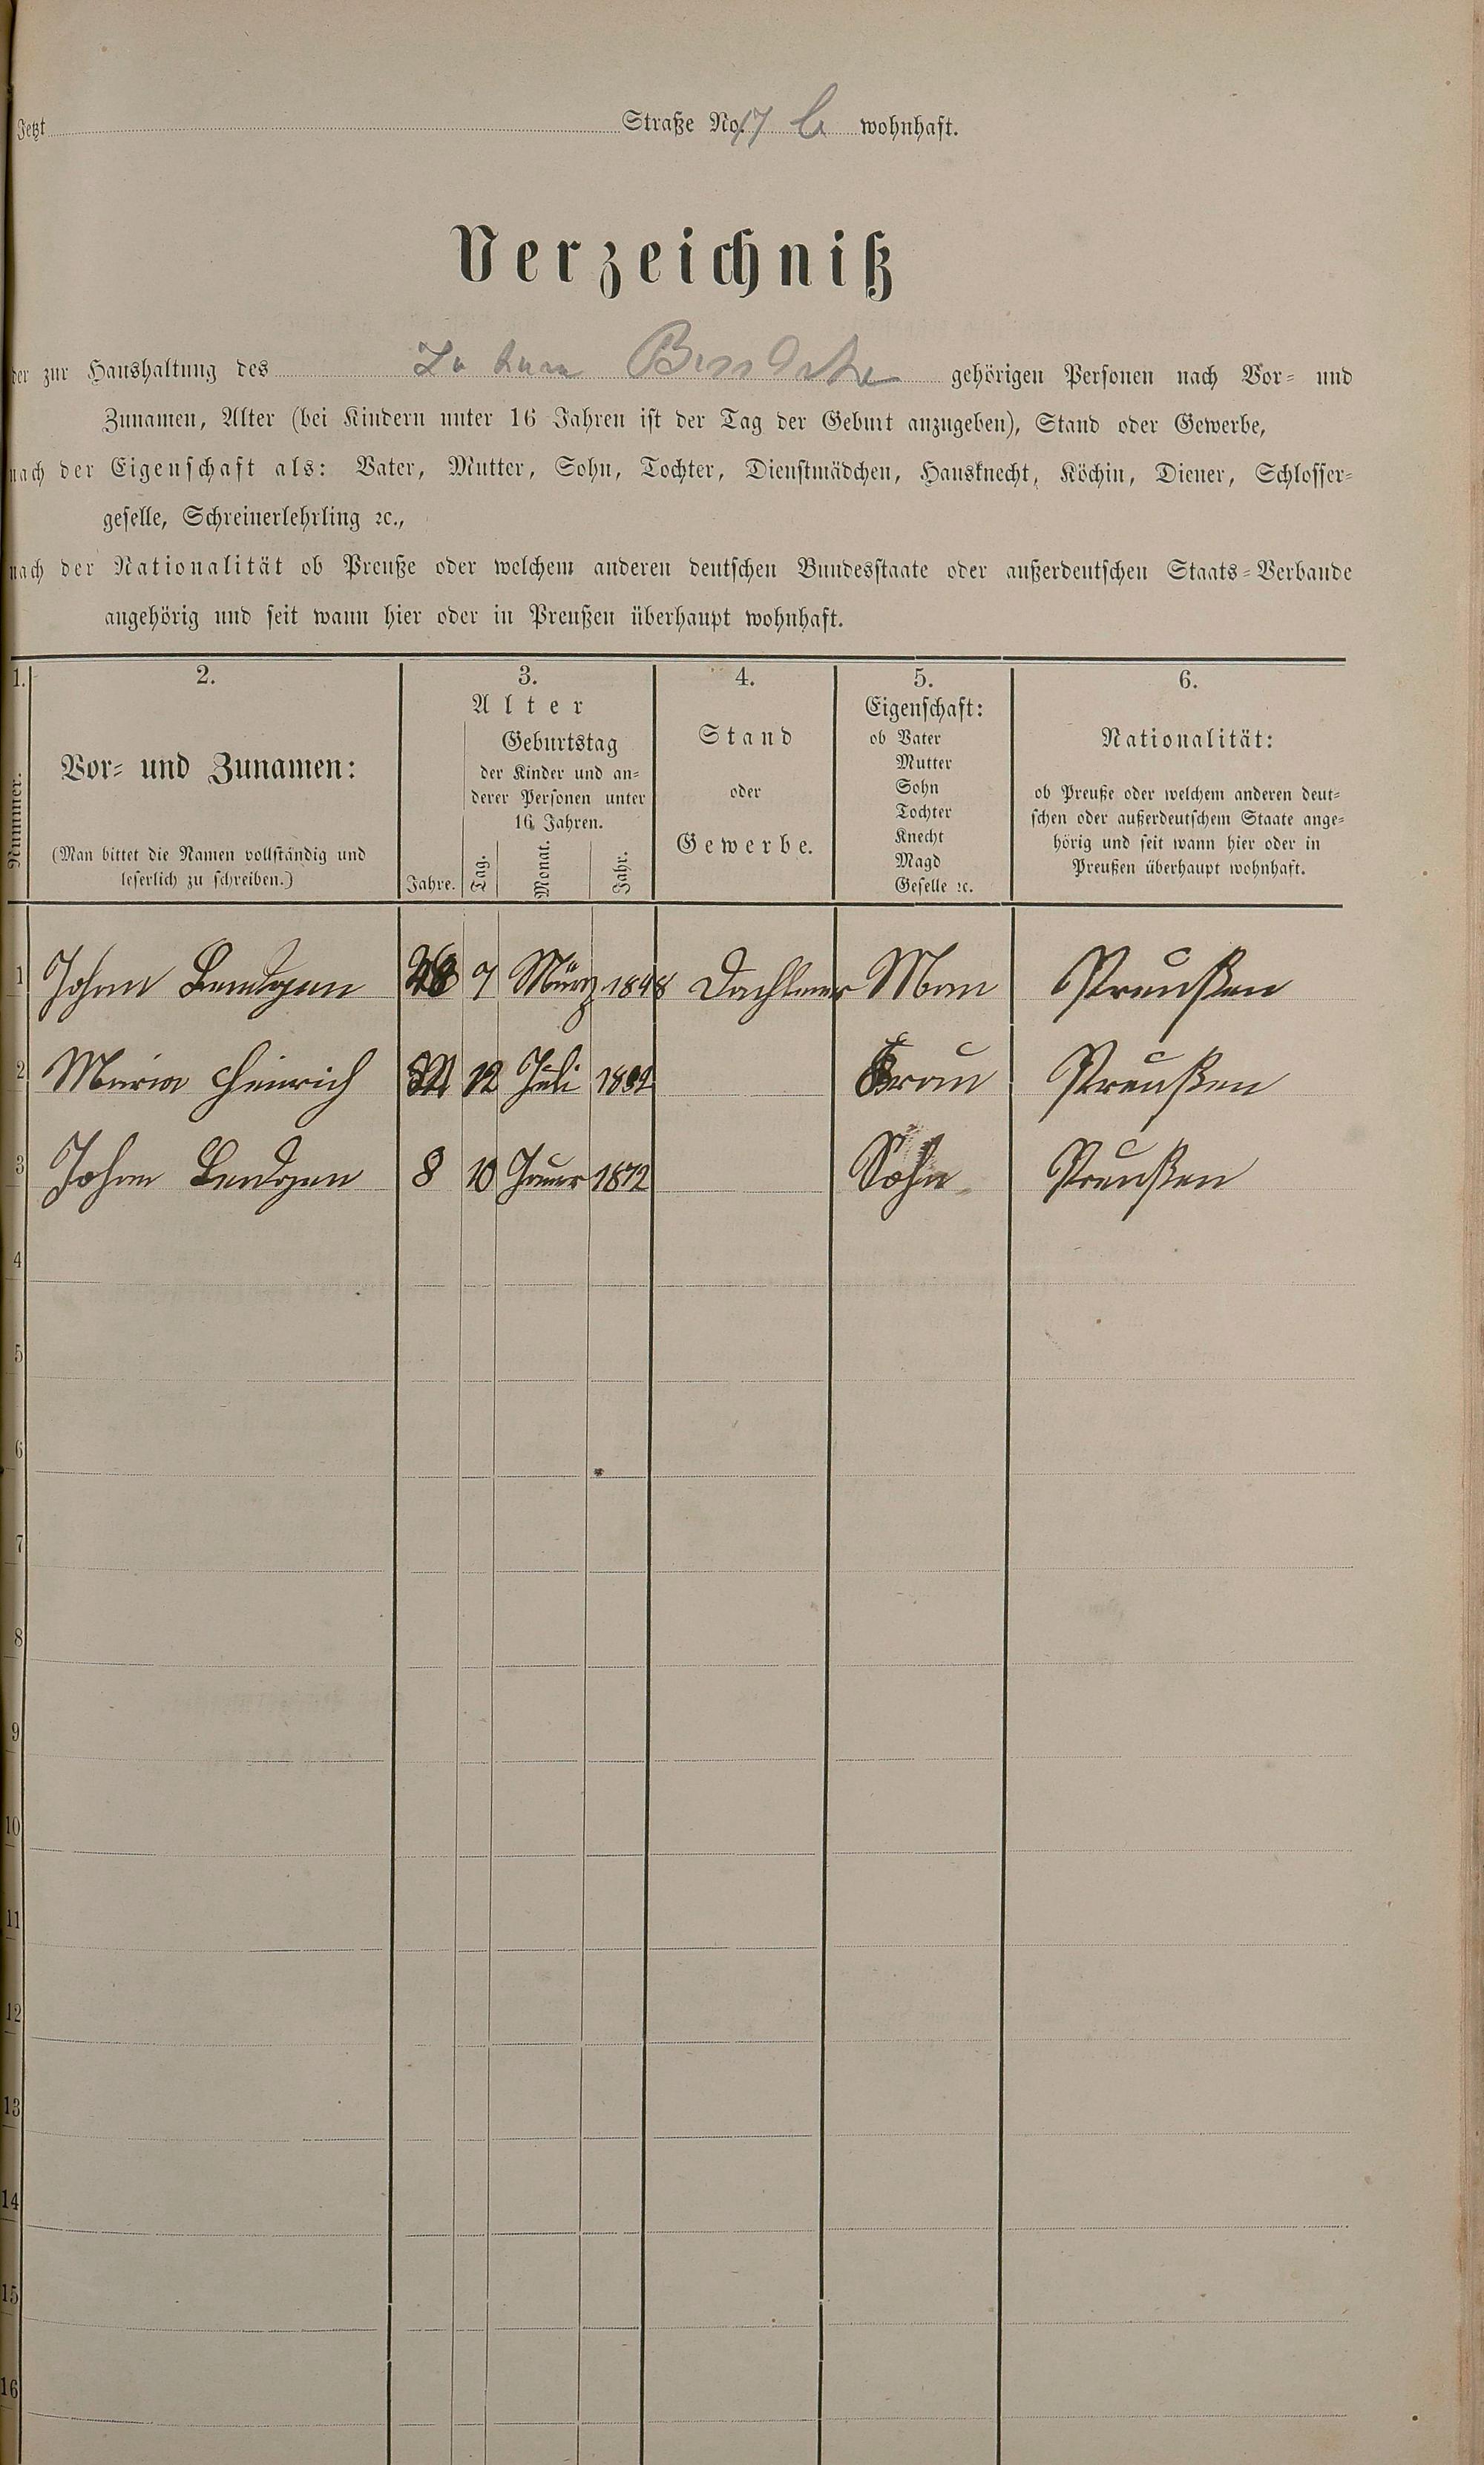 Jetzt Straße No. 17 b wohnhaft.
Verzeichniß
der zur Haushaltung des Johann gehörigen Personen nach Vor- und
Zunamen, Alter (bei Kindern unter 16 Jahren ist der Tag der Geburt anzugeben), Stand oder Gewerbe,
nach der Eigenschaft als: Vater, Mutter, Sohn, Tochter, Dienstmädchen, Hausknecht, Köchin, Diener, Schlosser-
geselle, Schreinerlehrling ꝛc.,
nach der Nationalität ob Preuße oder welchem anderen deutschen Bundesstaate oder außerdeutschen Staats-Verbande
angehörig und seit wann hier oder in Preußen überhaupt wohnhaft.
1. 2. 3. 4. 5. 6.
Nummer.
Vor- und Zunamen:
(Man bittet die Namen vollständig und
leserlich zu schreiben.)
Alter
Geburtstag
der Kinder und an-
derer Personen unter
16 Jahren.
Jahre. Tag. Monat. Jahr.
Stand
oder
Gewerbe.
Eigenschaft:
ob Vater
Mutter
Sohn
Tochter
Knecht
Magd
Geselle ꝛc.
Nationalität:
ob Preuße oder welchem anderen deut-
schen oder außerdeutschem Staate ange-
hörig und seit wann hier oder in
Preußen überhaupt wohnhaft.
1 Johan 7 März 1848 Man Preußen
2 Maria Heinrich 12 Juli Frau Preußen
3 Johan 8 10 Januar 1872 Sohn Preußen
4
5
6
7
8
9
10
11
12
13
14
15
16